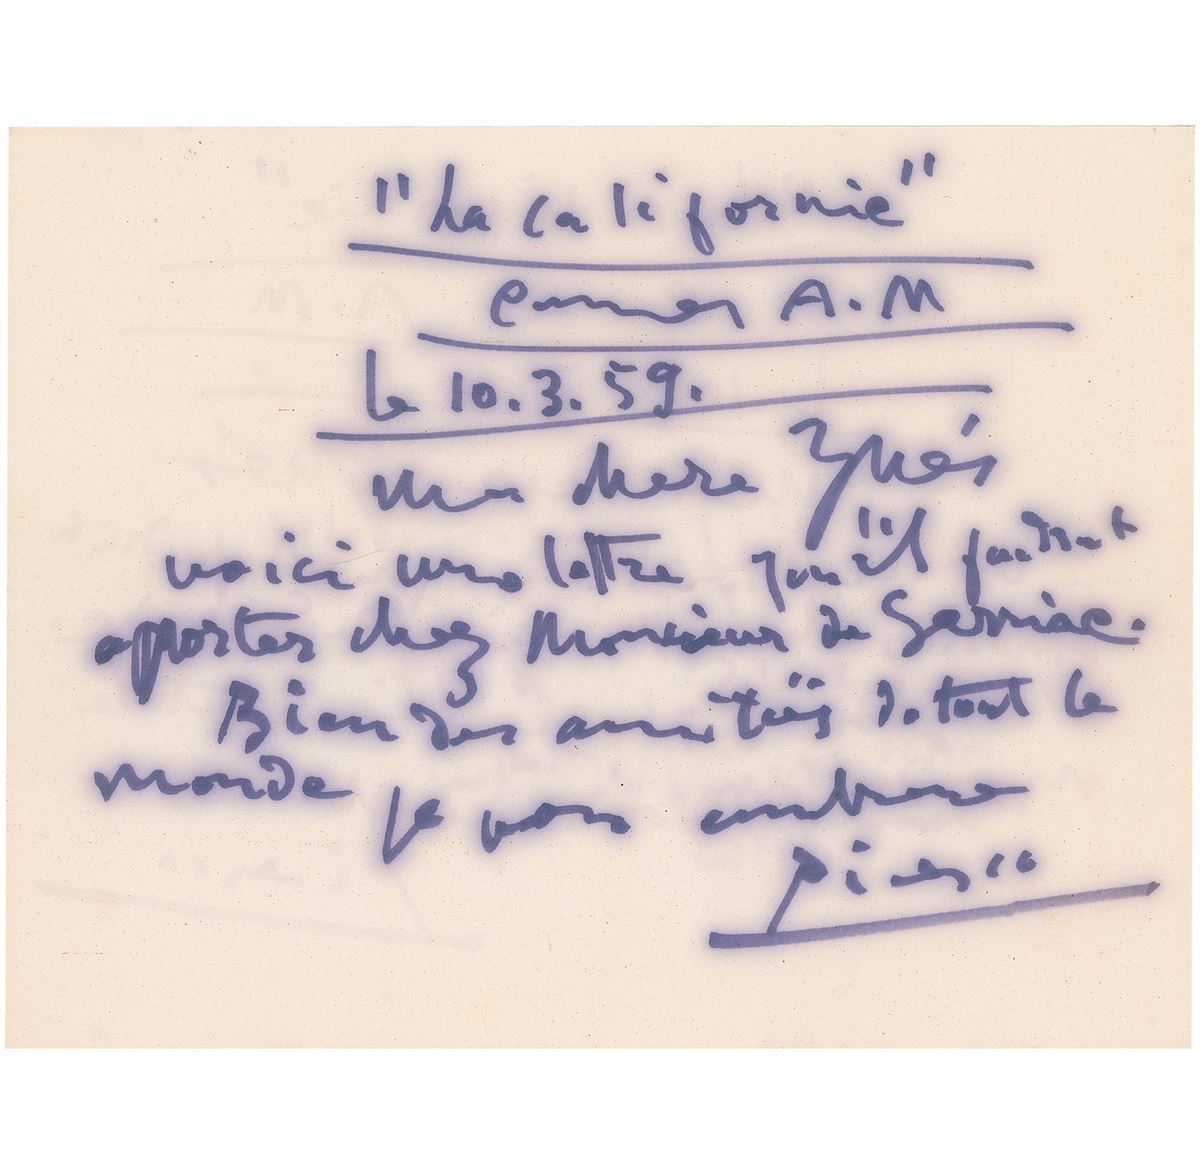 "La Californie"
Cannes A.M
le 10.3.59.
Ma chere Ynés
voici une lettre qu'il faudrait
apporter chez Monsieur de
Bien des amitiés de tout le
monde je vous embrasse
Picasso